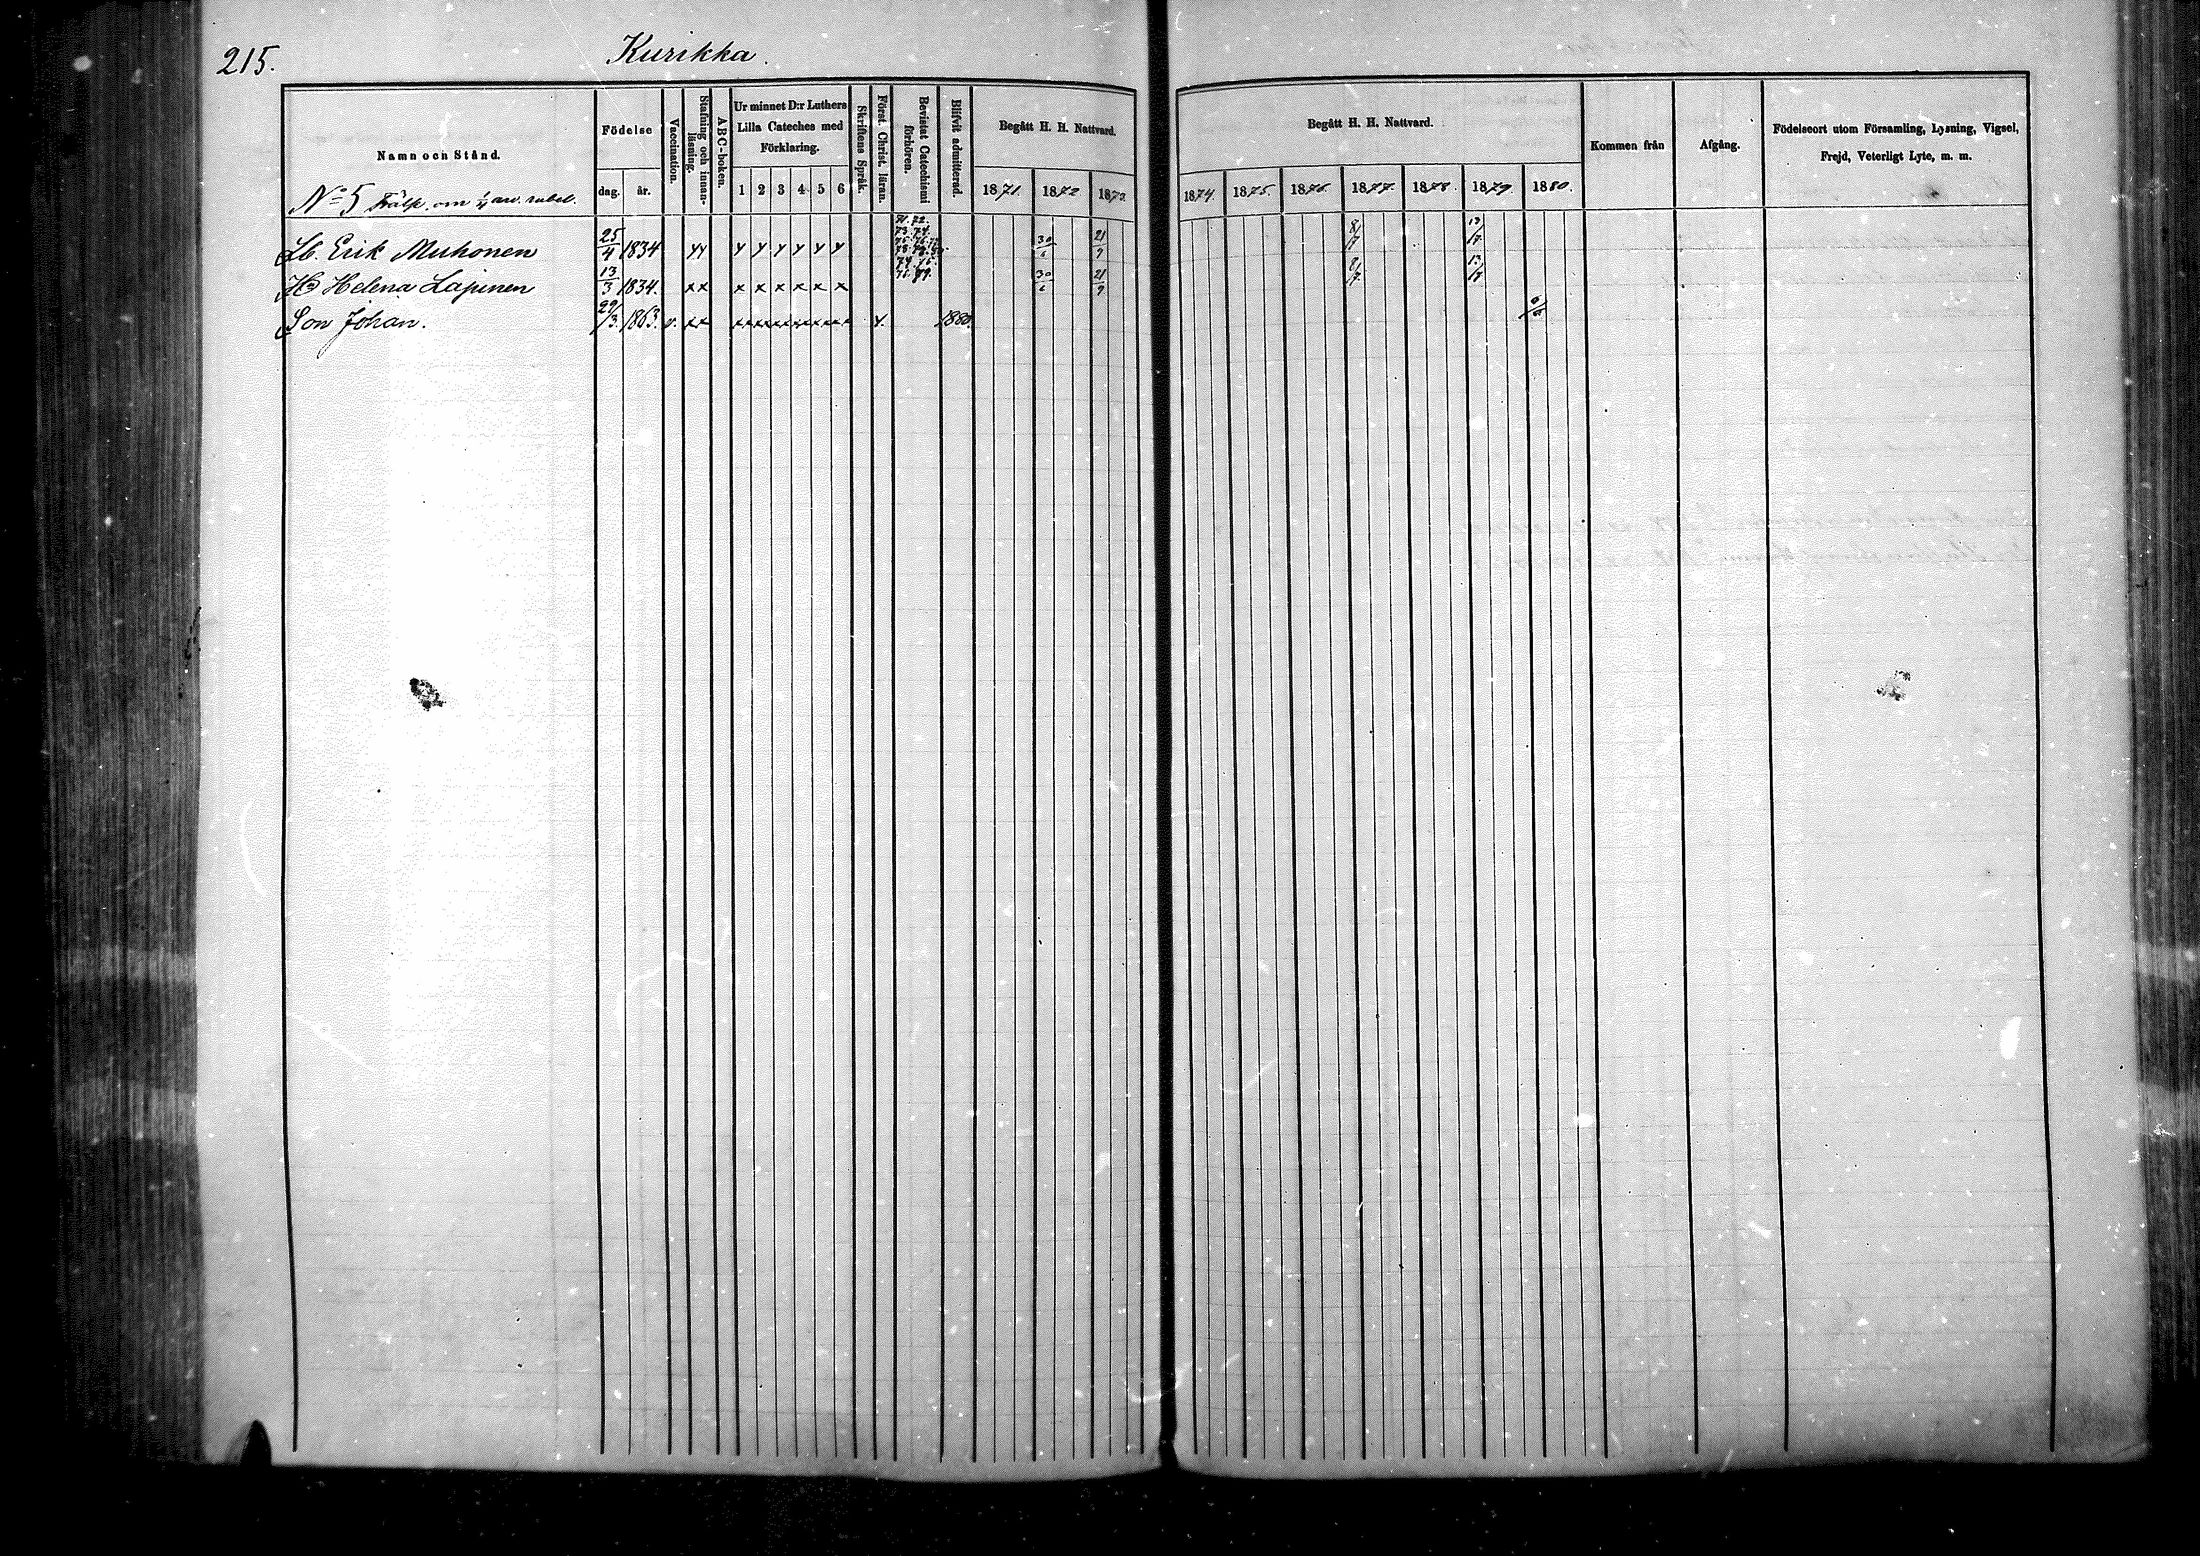 215. Kurikka.
Namn och Stånd.
Födelse
dag. år.
Vaccination.
Stafning och innanläsning.
ABC-boken.
Ur minnet D:r Luthers
Lilla Cateches med
Förklaring.
1 2 3 4 5 6
Skriftens Språk.
Först. Christ. läran.
Bevistat Catechismi förhören.
Blifvit admitterad.
Begått H. H. Nattvard.
1871. 1872 1873.
Begått H. H. Nattvard.
1874. 1875. 1876. 1877. 1878. 1879 1880.
Kommen från
Afgång.
Födelseort utom Församling, Lysning, Vigsel,
Frejd, Veterligt Lyte, m. m.
No 5 om
Erik Muhonen 25/4 1834 30/6 21/9 8/7 13/7
Helena Lajunen 13/3 1834. x x x x x x x x 30/6 21/9 8/7 13/7
Son Johan. 1863. v. 1880.